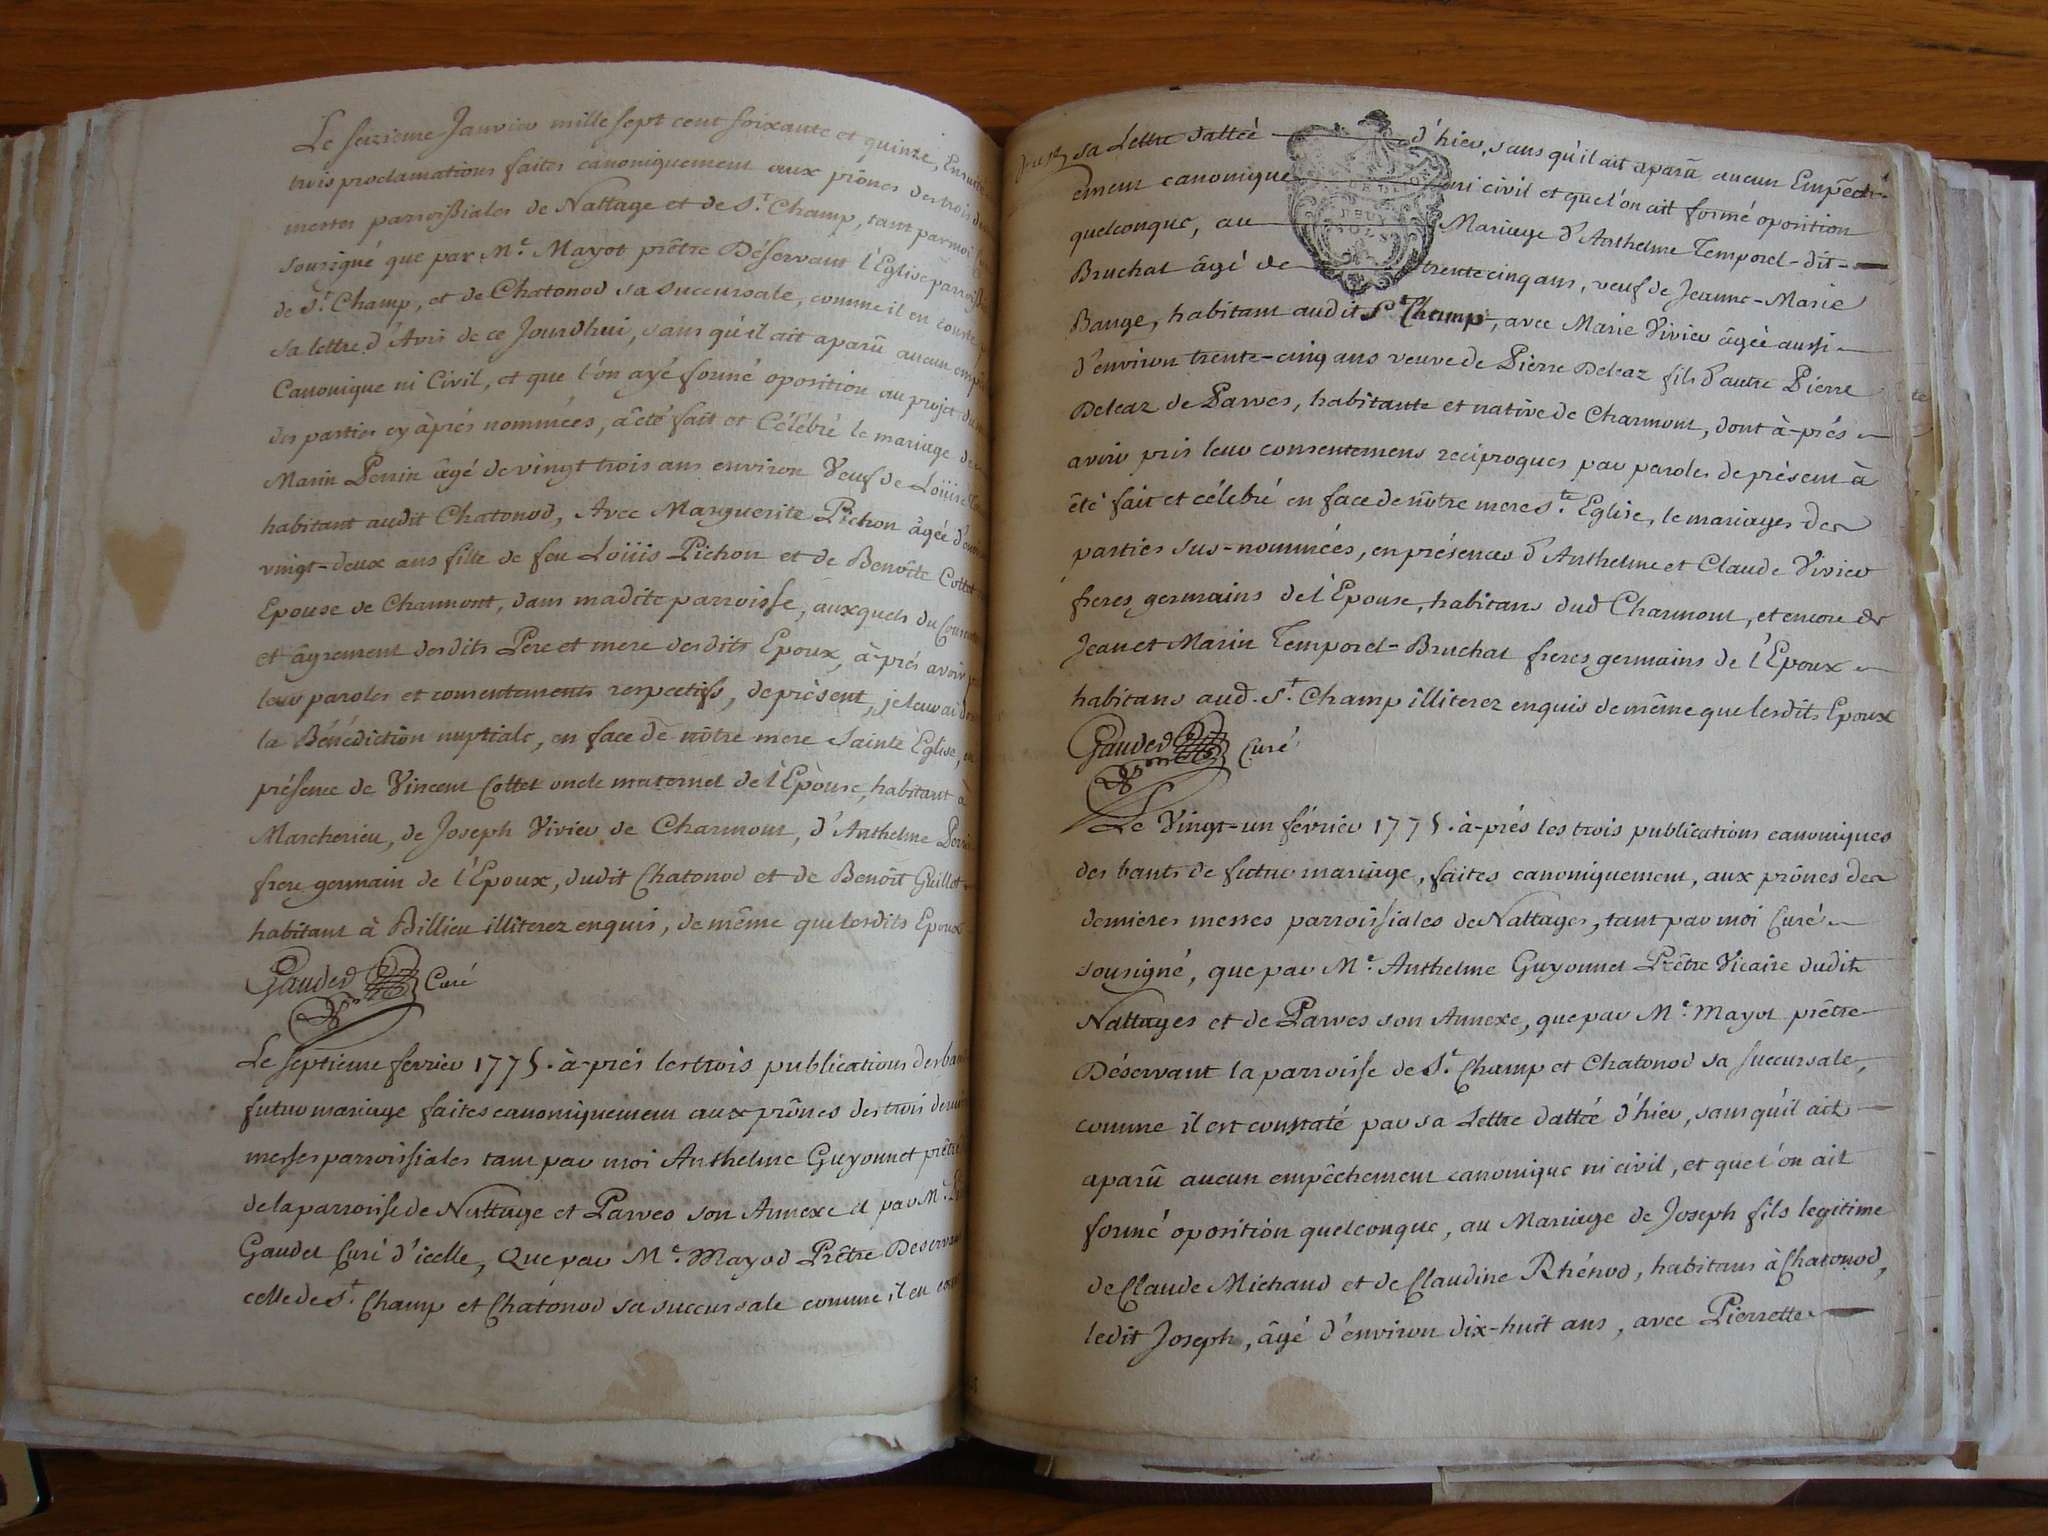 Le seizieme Janvier mille sept cent soixante et quinze, Ensuite
trois proclamations faites canoniquement aux prônes des trois
messes parroissiales de Nattage et de St. Champ, tant par moi
sousigné que par Me. Mayot prêtre Déservant l'Eglise parroiss
de St. Champ, et de Chatonod sa succursale, comme il en conste
sa lettre d'Avis de ce Jourdhui, sans qu'il ait aparû aucun emp
Canonique ni Civil, et que l'ón ayé formé oposition au projet du
des parties cy àprés nommées, à été fait et Célébré le mariage de
Marin Perrin âgé de vingt trois ans environ Veuf de Loüise
habitant audit Chatonod, Avec Marguerite Pichon âgée d'envi
vingt-deux ans fille de feu Loüis Pichon et de Benoîte Cottet
Epouse de Charmont, dans madite parroisse, auxquels du Consen
et âgrement desdits Pere et mere desdits Epoux, à-prés avoir
leur paroles et consentements respectifs, de présent, je leur ai
la Bénédiction nuptiale, en face de nôtre mere Sainte Eglise, en
présence de Vincent Cottet oncle maternel de l'Epouse, habitant à
Marcherieu, de Joseph Vivier de Charmont, d'Anthelme Perrin
frere germain de l'Epoux, dudit Chatonod et de Benoît Guillot
habitant à Billieu illiterez enquis, de même que lesdits Epoux
Gauded Curé
Le septieme fevrier 1775. à-prés les trois publications des ban
futur mariage faites canoniquement aux prônes des trois derni
messes parroissiales tant par moi Anthelme Guyonnet prêtre
de la parroisse de Nattage et Parves son Annexe et par Me.
Gaudet Curé d'icelle, Que par Me. Mayod Prêtre Deservant
celle de St. Champ et Chatonod sa succursale comme il en con
sa Lettre dattée d'hier, sans qu'il ait aparû aucun Empêch-
ement canonique ni civil et que l'ón ait formé oposition
quelconque, au Mariage d'Anthelme Temporel-dit-
Bruchat âgé de trente cinq ans, veuf de Jeanne-Marie
Bauge, habitant audit St. Champ, avec Marie Vivier âgée aussi
d'environ trente-cinq ans veuve de Pierre Deleaz fils d'autre Pierre
Deleaz de Parves, habitante et native de Charmont, dont à-prés
avoir pris leur consentemens reciproques par paroles de présent à
êté fait et célebré en face de nôtre mere Ste. Eglise, le mariages des
parties sus-nommées, en présences d'Anthelme et Claude Vivier
freres germains de l'Epouse, habitans dud Charmont, et encore de
Jean et Marin Temporel-Bruchat freres germains de l'Epoux
habitans aud. St. Champ illiterez enquis de même que lesdits Epoux
Gauded Curé
Le Vingt-un février 1775. à-prés les trois publications canoniques
des bants de futur mariage, faites canoniquement, aux prônes des
dernieres messes parroissiales de Nattages, tant par moi Curé
sousigné, que par Me. Anthelme Guyonnet Prêtre Vicaire dudit
Nattages et de Parves son Annexe, que par Me. Mayot prêtre
Déservant la parroisse de St. Champ et Chatonod sa succursale,
comme il est constaté par sa Lettre dattée d'hier, sans qu'il ait
aparû aucun empêchement canonique ni civil, et que l'ón ait
formé oposition quelconque, au Mariage de Joseph fils legitime
de Claude Michaud et de Claudine Rhénod, habitans à Chatonod,
ledit Joseph, âgé d'environ dix-huit ans, avec Pierrette